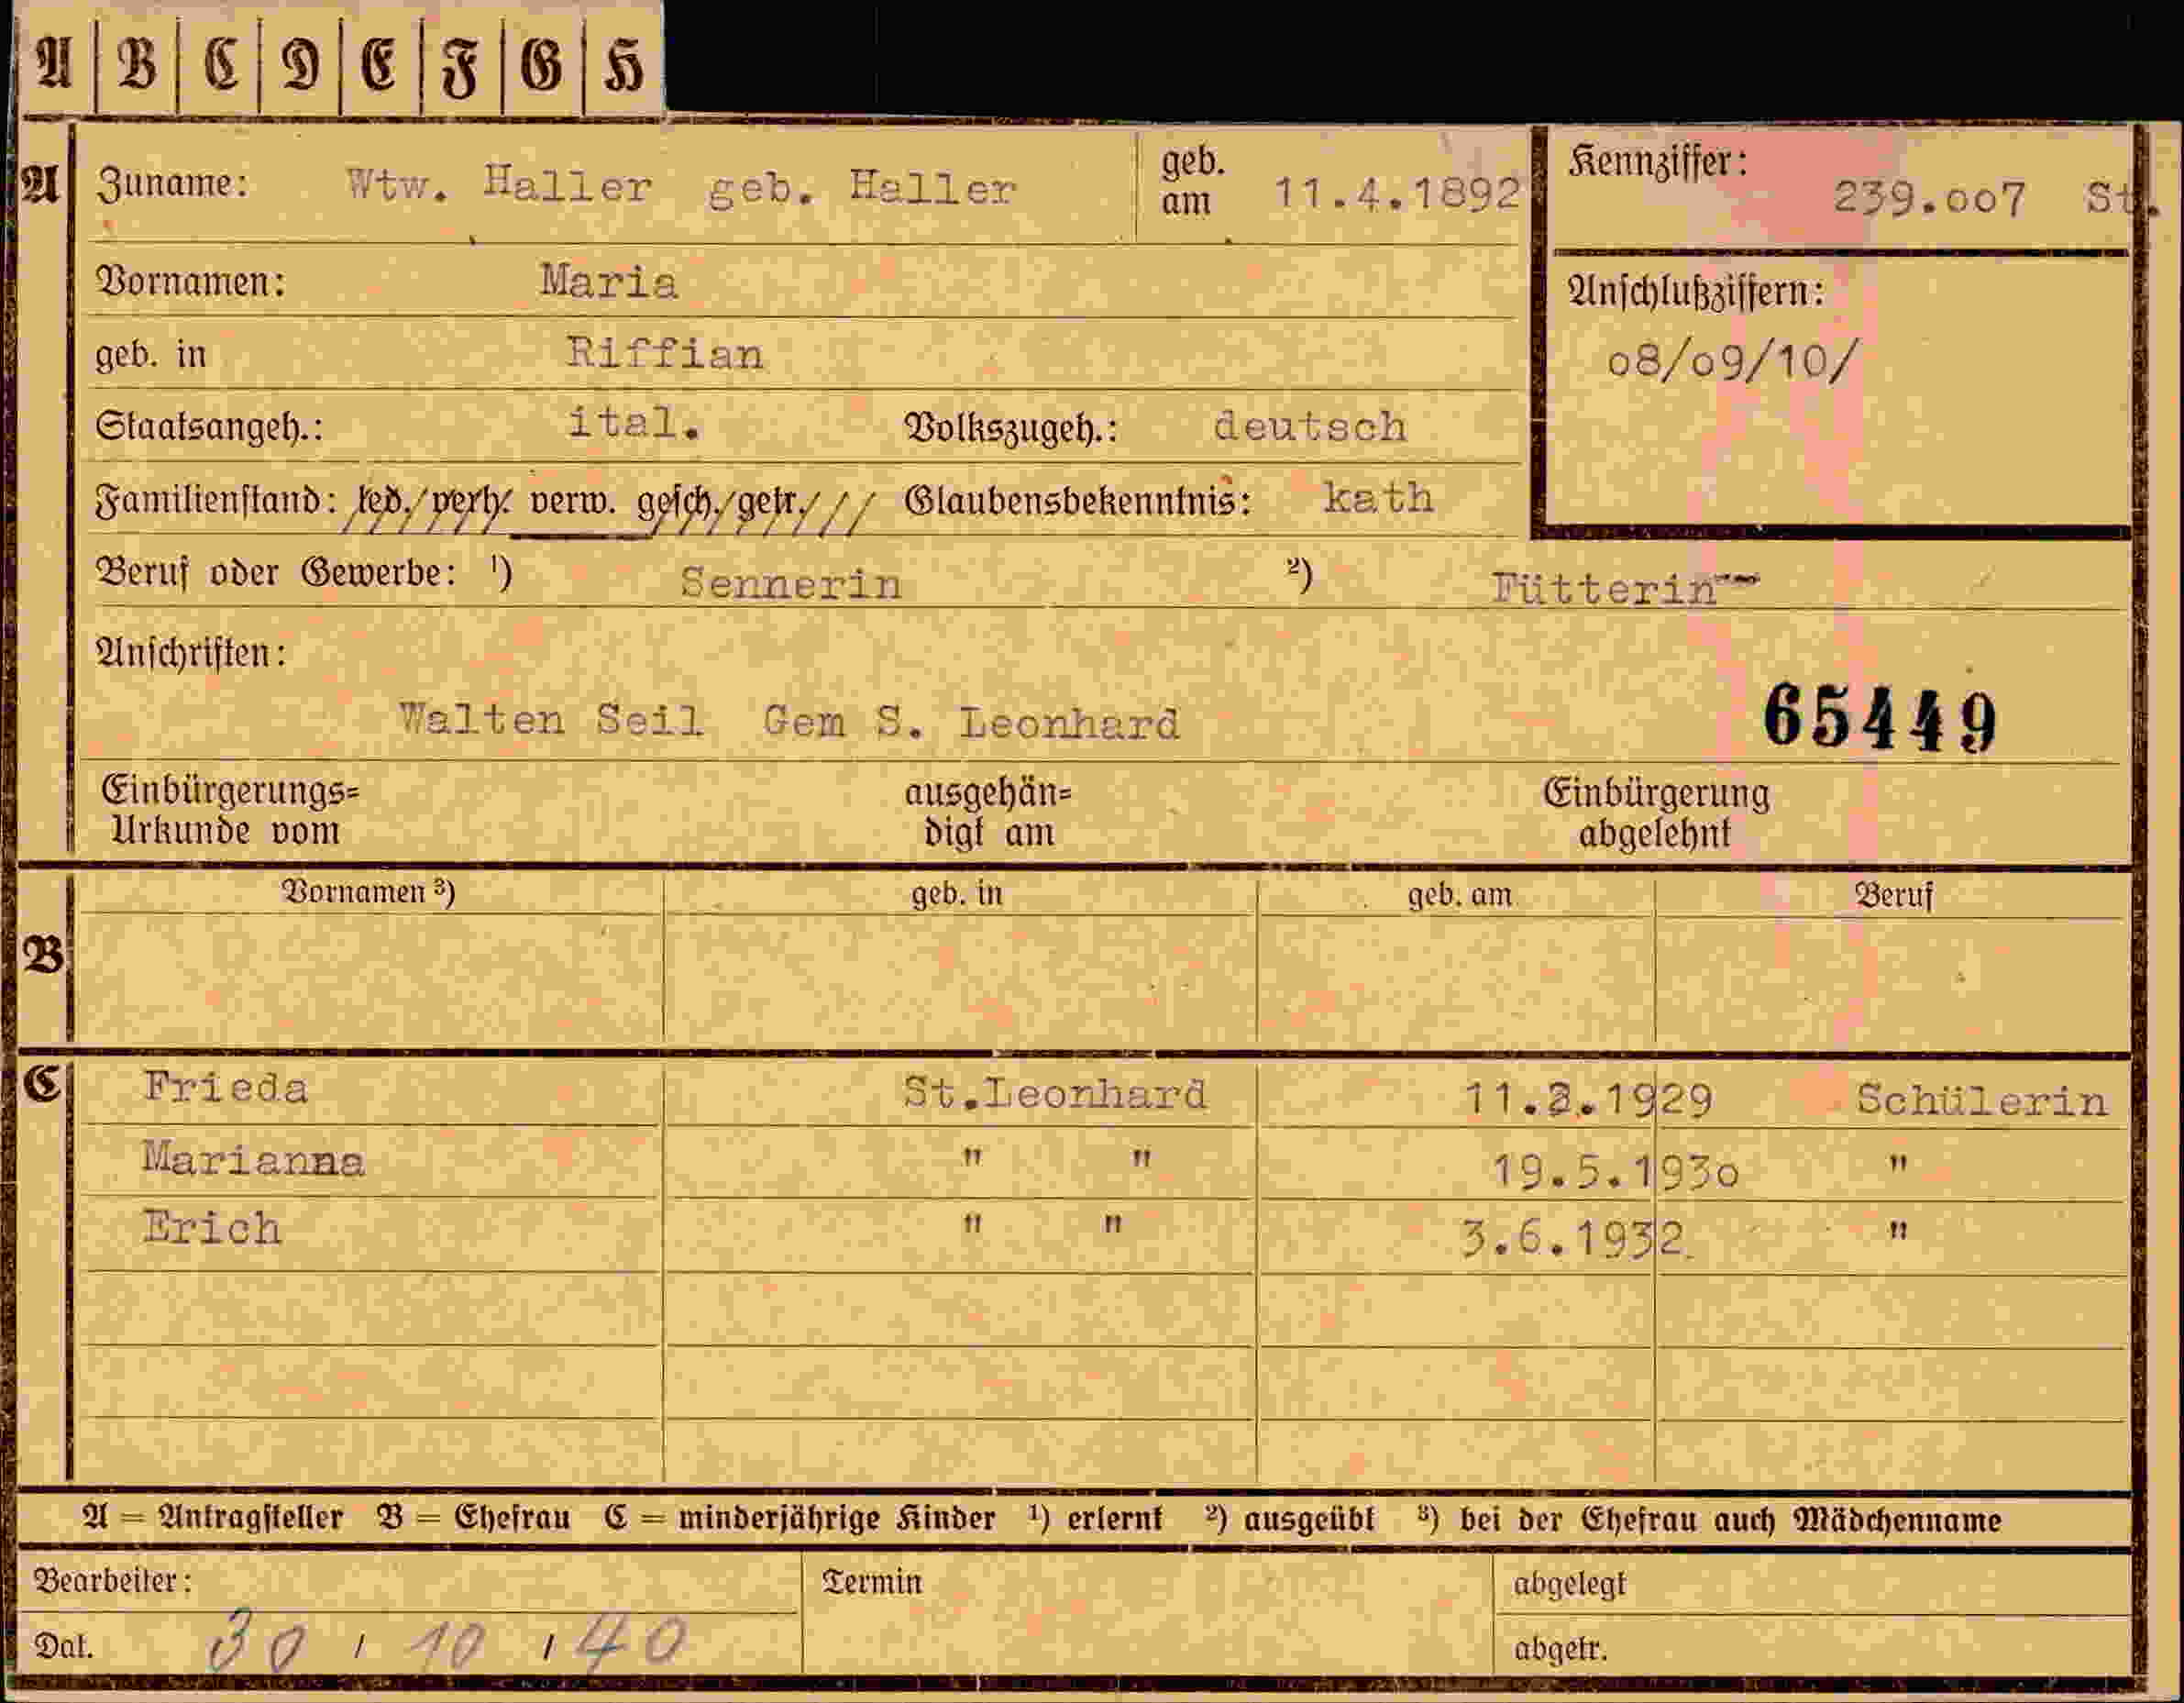 A B C D E F G H
A Zuname: Wtw. Haller geb. Haller geb. am 11.4.1892 Kennziffer: 239.007 St.
Vornamen: Maria
geb. in Riffian Anschlußziffern: 08/09/10/
Staatsangeh.: ital. Volkszugeh.: deutsch
Familienstand: led./verh. verw. gesch./getr./// Glaubensbekenntnis: kath
Beruf oder Gewerbe: ¹) Sennerin ²) Fütterin
Anschriften:
Walten Seil Gem S. Leonhard 65449
Einbürgerungs= ausgehän= Einbürgerung
Urkunde vom digt am abgelehnt
Vornamen ³) geb. in geb. am Beruf
B
C Frieda St.Leonhard 11.3.1929 Schülerin
Marianna " " 19.5.1930 "
Erich " " 3.6.1932 "
A = Antragsteller B = Ehefrau C = minderjährige Kinder ¹) erlernt ²) ausgeübt ³) bei der Ehefrau auch Mädchenname
Bearbeiter: Termin abgelegt
Dat. 30 / 10 / 40 abgetr.